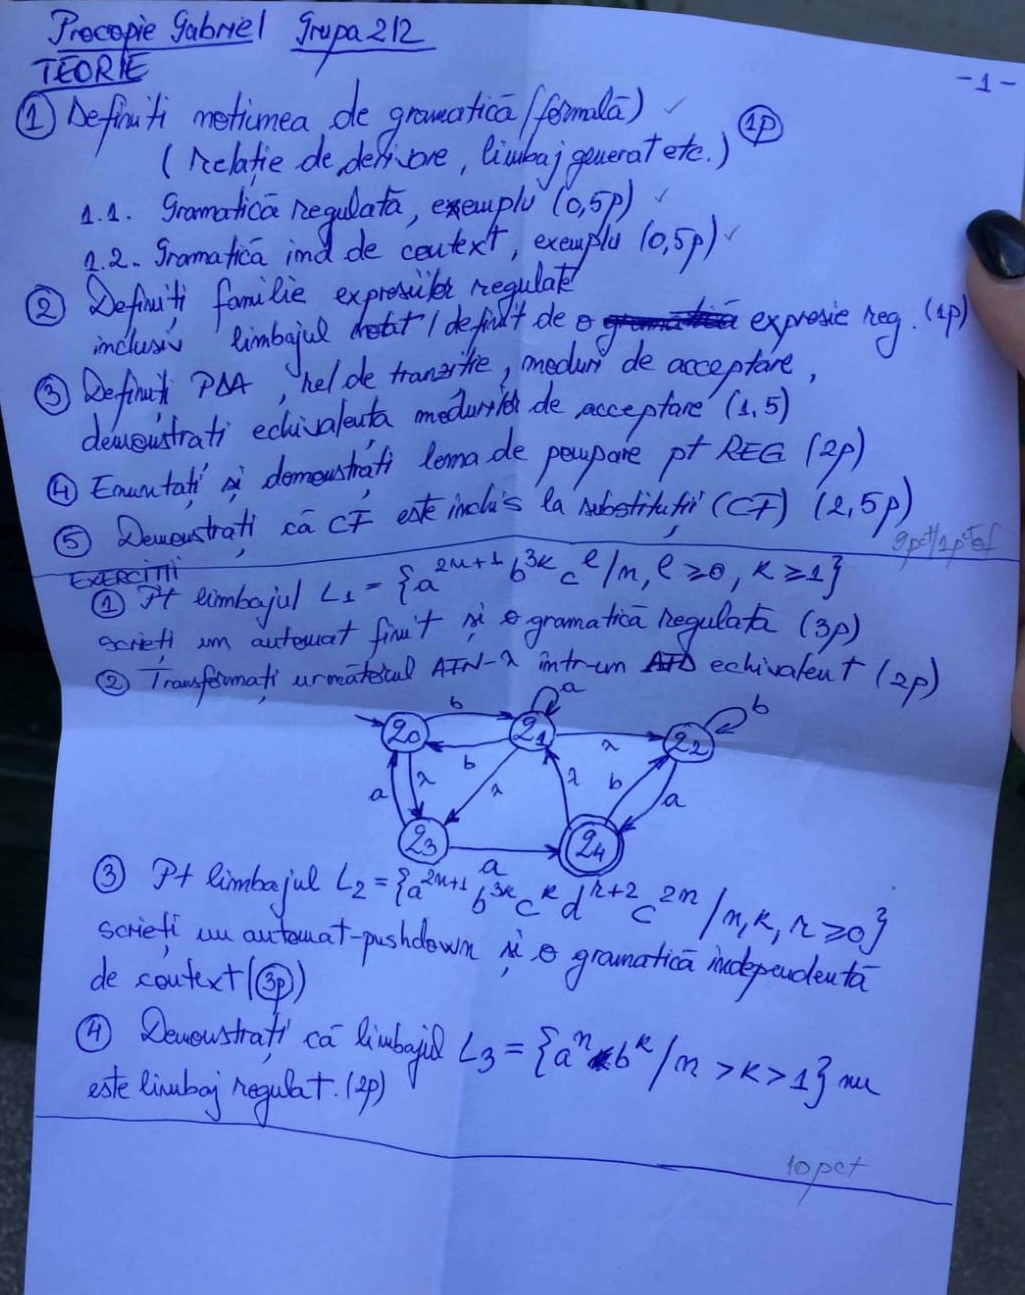 Procopie Gabriel Grupa 212
TEORIE
-1-
① Definiti notiunea de gramatică (formală) ✓
(relație de derivare, limbaj generat etc.) 1p
1.1. Gramatică regulată, exemplu (0,5p) ✓
1.2. Gramatică ind de context, exemplu (0,5p) ✓
② Definiți familie expresiilor regulate
inclusiv limbajul / definit de o expresie reg. (1p)
③ Definiți PDA, rel de tranziție, moduri de acceptare,
demonstrati echivalenta modurilor de acceptare (1,5)
④ Enuntați și demonstrați lema de pompare pt REG (2p)
⑤ Demonstrați că CF este inclus la substituții (CF) (2,5p)
9pct/1pct of
EXERCITII
① Pt limbajul L₁ = {a²ⁿ⁺¹ b³ᵏ cˡ / n, l ≥ 0, k ≥ 1}
scrieti un automat finit și o gramatică regulată (3p)
② Transformați următorul AFN-λ intr-un AFD echivalent (2p)
a
b
b
q0 q1 q2
λ
b
a λ λ λ b a
q3 q4
a
③ Pt limbajul L₂ = {a²ⁿ⁺¹ b³ᵏ cᵏ dʳ⁺² c²ⁿ / n, k, r ≥ 0}
scrieți un automat-pushdown și o gramatică independentă
de context (3p)
④ Demonstrați că limbajul L₃ = {aⁿ bᵏ / n > k > 1} nu
este limbaj regulat. (2p)
10 pct